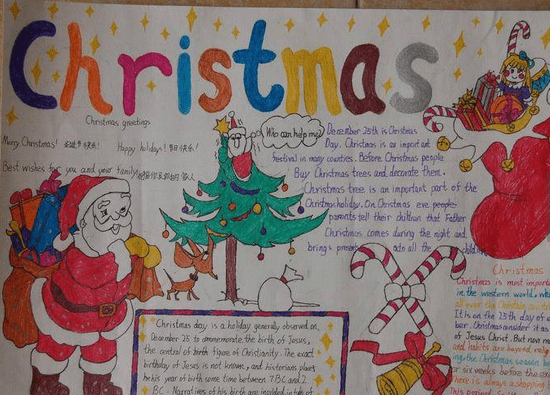 Christmas
Christmas greetings
Merry Christmas! 圣诞节快乐!
Happy holidays! 节日快乐!
Best wishes for you and your family!
Who can help me?
December 25th is Christmas
Day. Christmas is an important
festival in many countries. Before Christmas people
Buy Christmas trees and decorate them.
Christmas tree is an important part of the
Christmas holiday. On Christmas eve people
parents tell their children that Father
Christmas comes during the night and
brings presents into all the
Christmas day is a holiday generally observed on
December 25 to commemorate the birth of Jesus,
the central of birth figure of Christianity. The exact
birthday of Jesus is not known, and historians place
his year of birth some time between 7BC and 2
BC. Narratives of his birth are included in
Christmas
Christmas is most import
in the western world,
It is on the 25th day of
ber. Christmas consider it as
of Jesus Christ. But now
and habits are beyond
ing the Christmas season
for six weeks before the
here is always a shopping
This period.